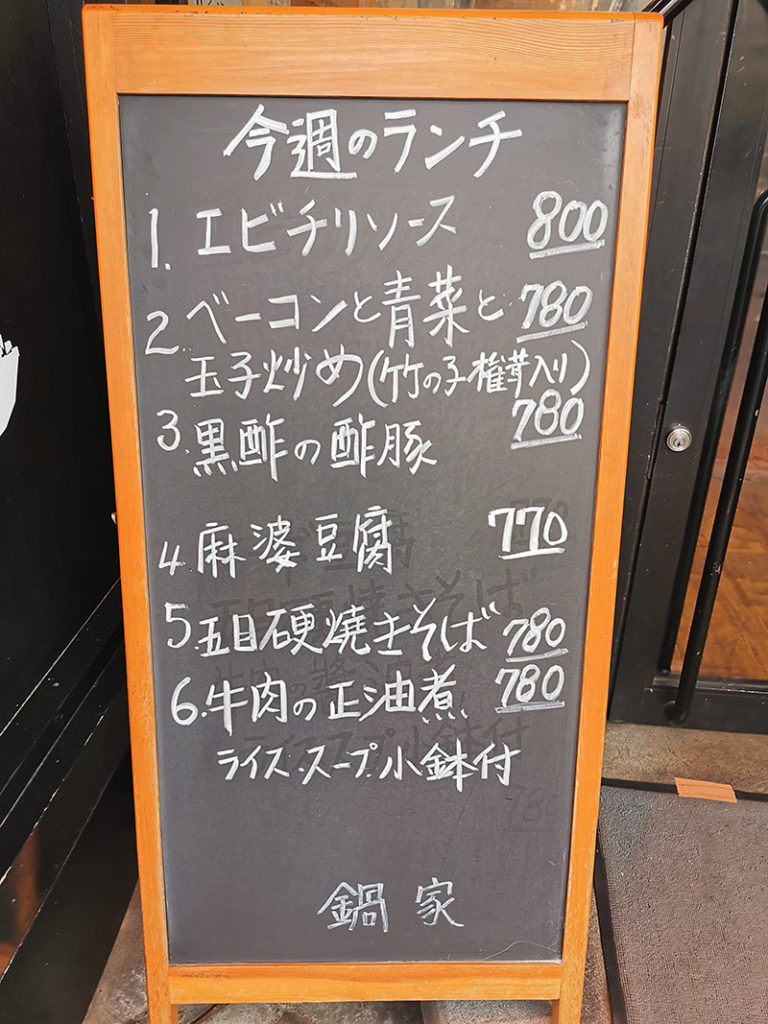 今週のランチ
1. エビチリソース 800
2. ベーコンと青菜と 780
玉子炒め(竹の子 椎茸入り)
3. 黒酢の酢豚 780
4. 麻婆豆腐 770
5. 五目硬焼きそば 780
6. 牛肉の正油煮 780
ライス.スープ.小鉢付
鍋家